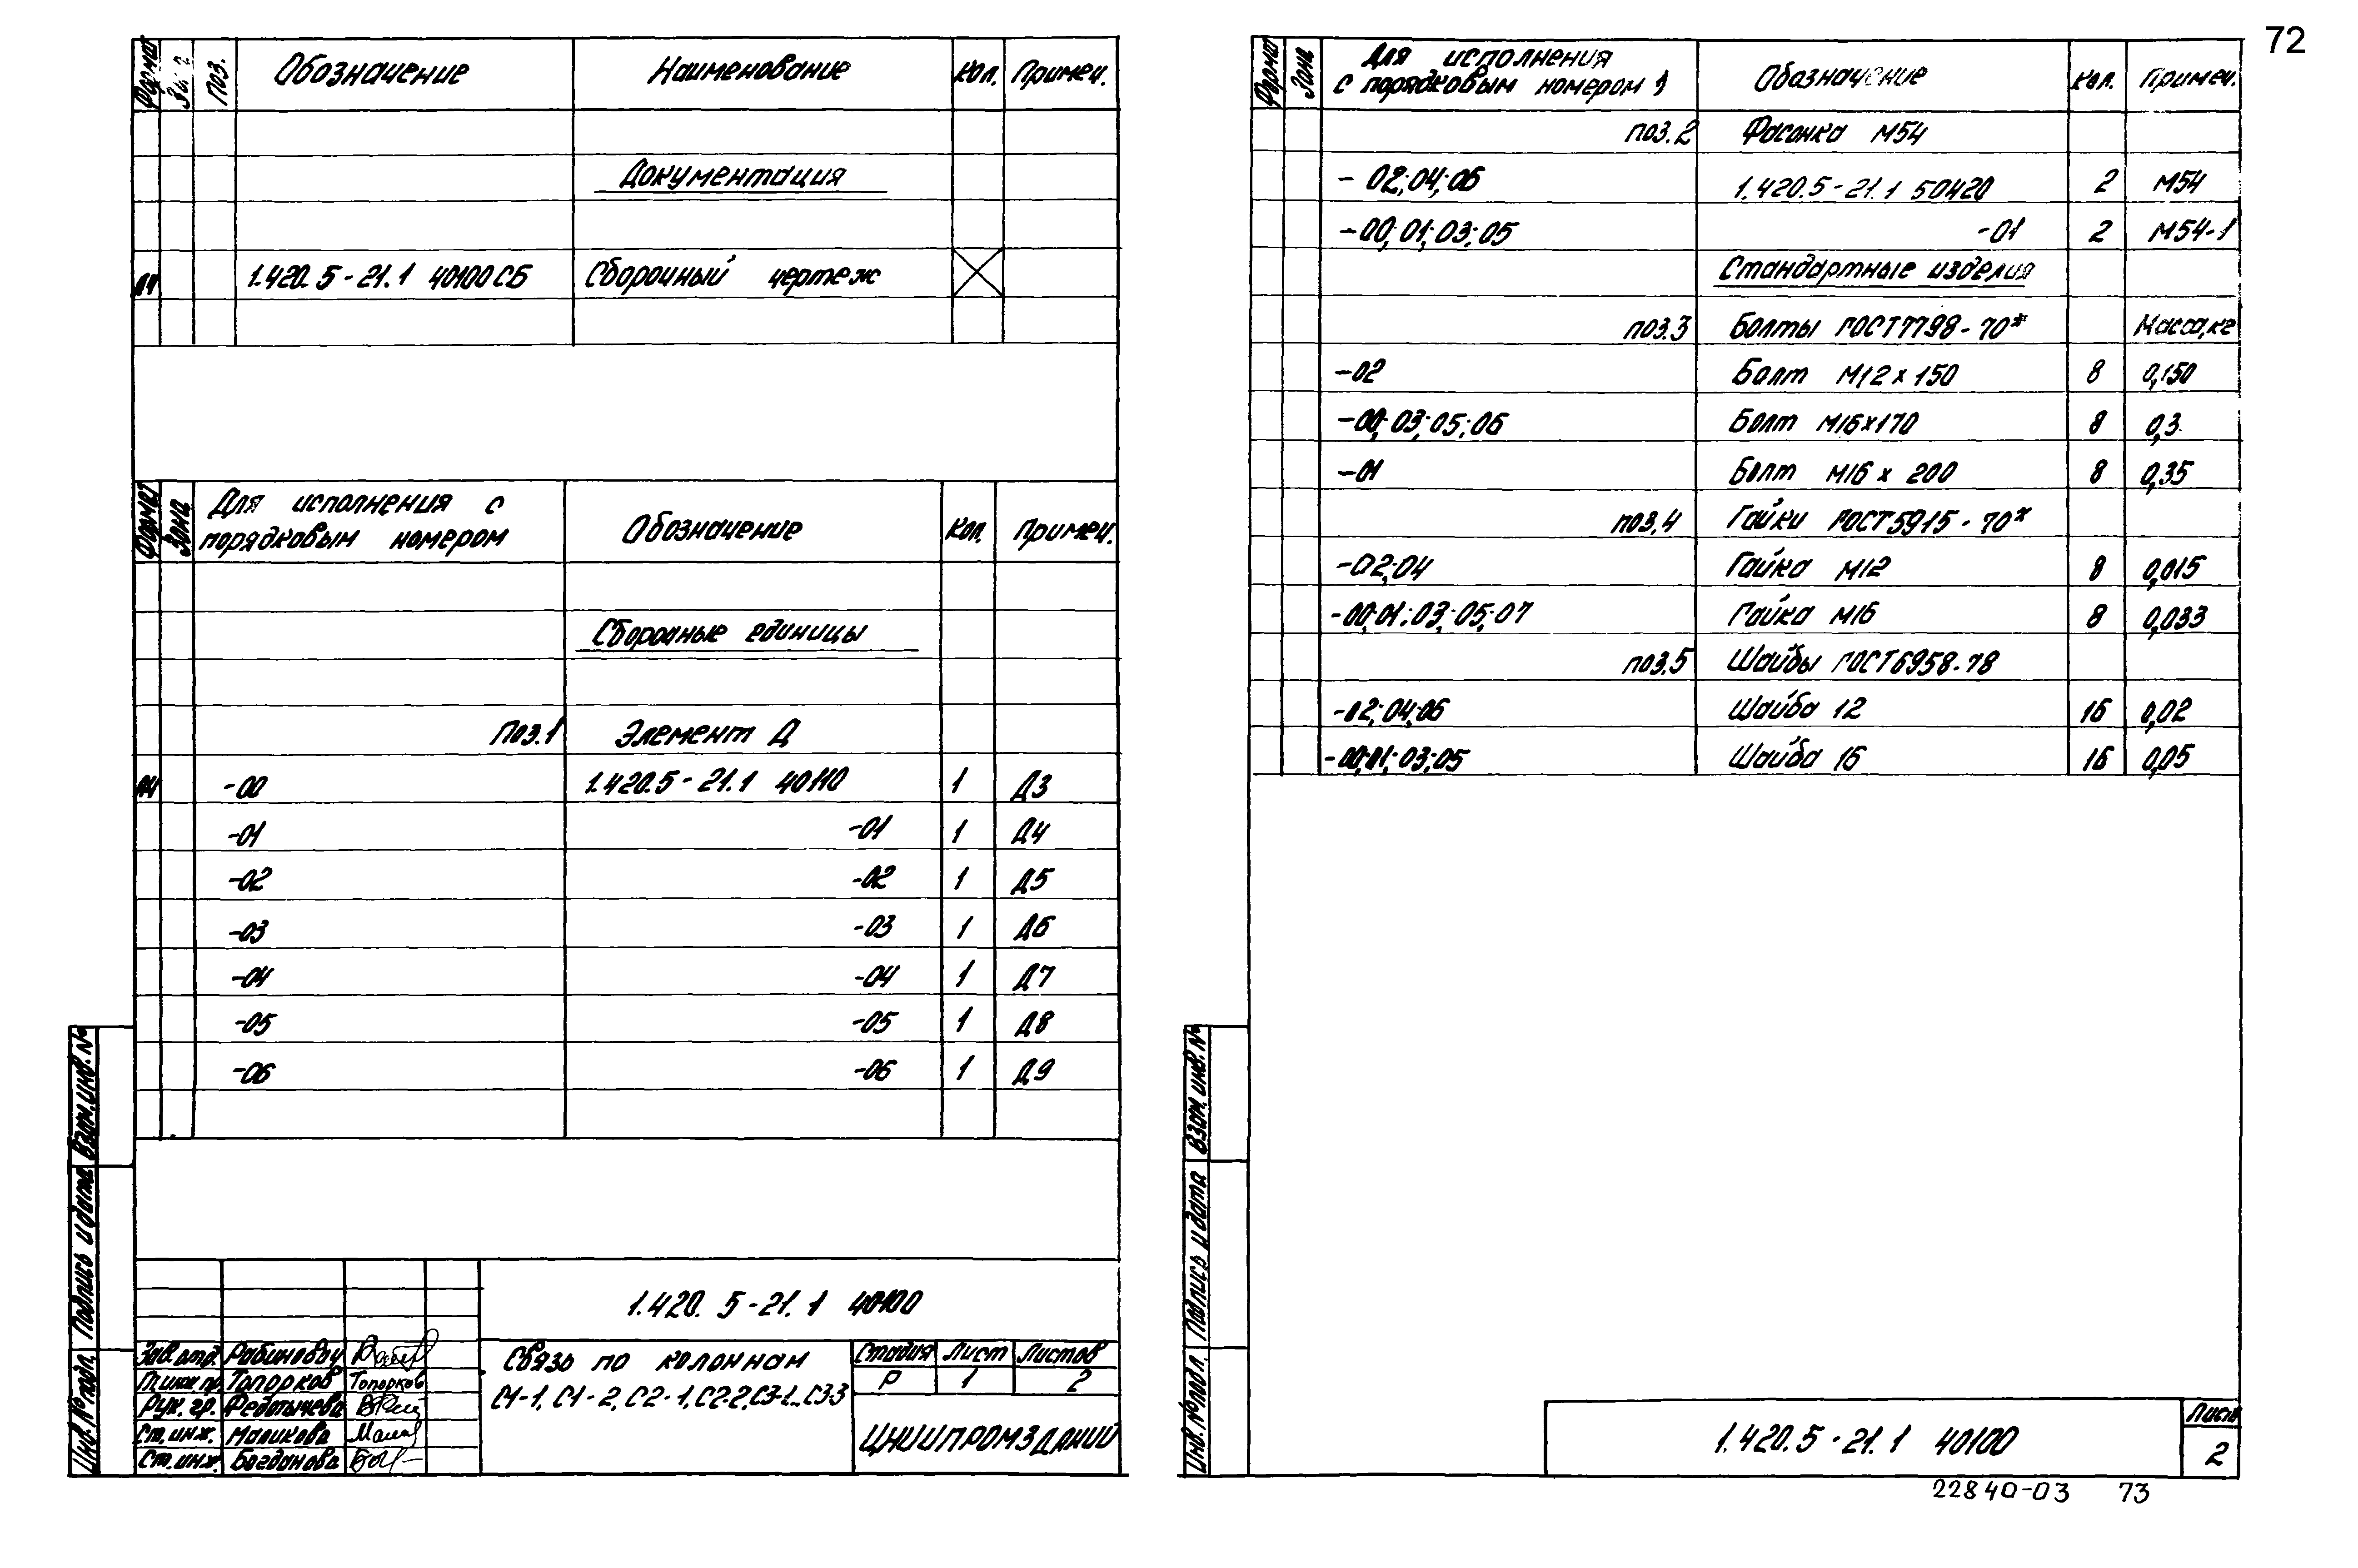 72
Формат Зона Поз. Обозначение Наименование Кол. Примеч.
Документация
А4 1.420.5-21.1 40100СБ Сборочный чертеж
Формат Зона Для исполнения с порядковым номером Обозначение Кол. Примеч.
Сборочные единицы
Поз.1 Элемент Д
А4 -00 1.420.5-21.1 40110 1 Д3
-01 -01 1 Д4
-02 -02 1 Д5
-03 -03 1 Д6
-04 -04 1 Д7
-05 -05 1 Д8
-06 -06 1 Д9
Инв.№подл. Подпись и дата Взам.инв.№
1.420.5-21.1 40100
Зав.отд. Рабинович
Гл.инж.пр. Топорков Топорков
Рук.гр. Федотычева
Ст.инж. Маликова
Ст.инж. Богданова
Связь по колоннам
С1-1, С1-2, С2-1, С2-2, С3-1...С3-3
Стадия Лист Листов
Р 1 2
ЦНИИПРОМЗДАНИЙ
Формат Зона Для исполнения с порядковым номером 1 Обозначение Кол. Примеч.
поз.2 Фасонка М54
-02;04;06 1.420.5-21.1 50420 2 М54
-00;01;03;05 -01 2 М54-1
Стандартные изделия
поз.3 Болты ГОСТ7798-70* Масса,кг
-02 Болт М12х150 8 0,150
-00;03;05;06 Болт М16х170 8 0,3
-01 Болт М16х200 8 0,35
поз.4 Гайки ГОСТ5915-70*
-02;04 Гайка М12 8 0,015
-00;01;03;05;07 Гайка М16 8 0,033
поз.5 Шайбы ГОСТ6958-78
-02;04;06 Шайба 12 16 0,02
-00;01;03;05 Шайба 16 16 0,05
Инв.№подл. Подпись и дата Взам.инв.№
1.420.5-21.1 40100
Лист
2
22840-03 73